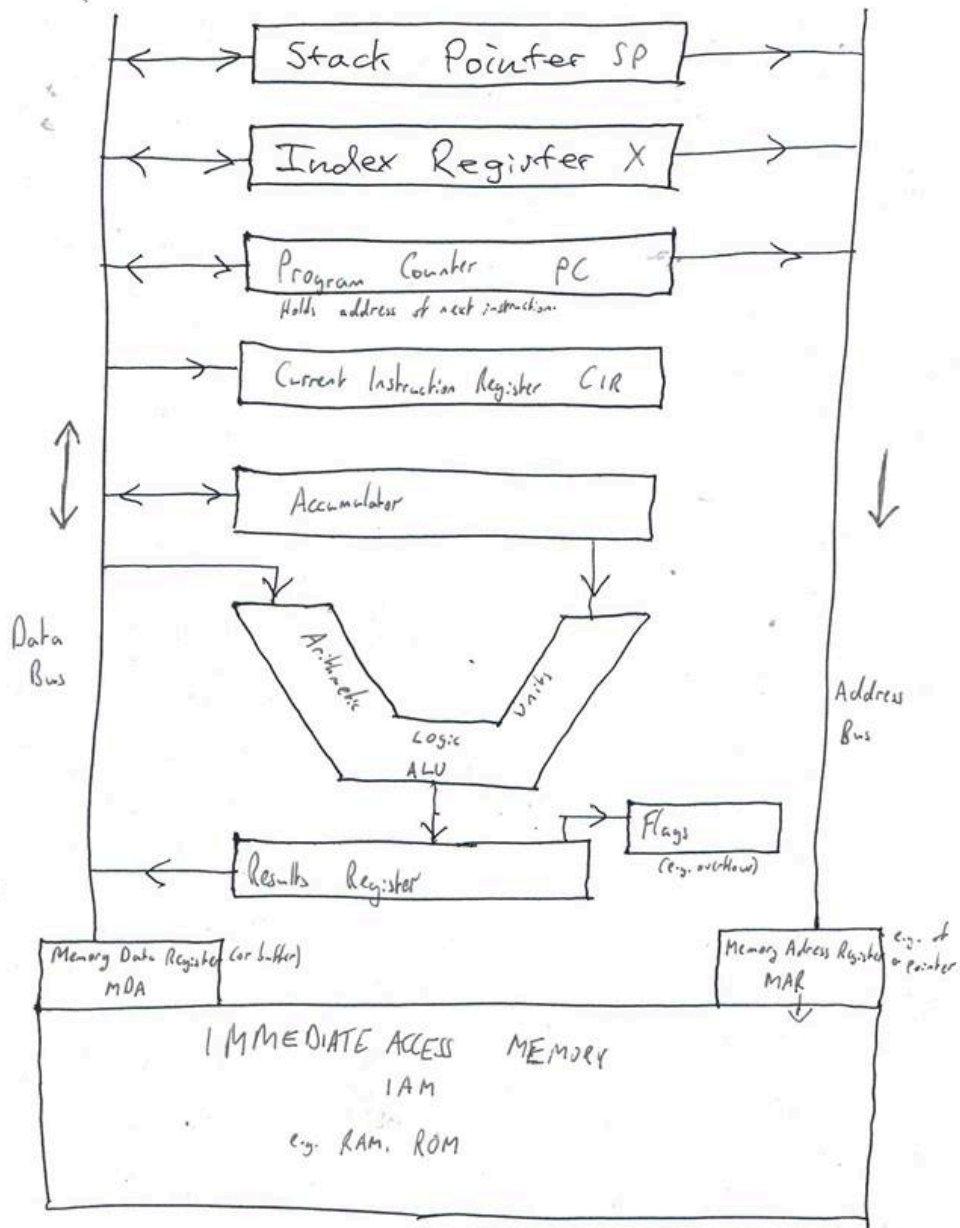 Stack Pointer SP
Index Register X
Program Counter PC
Holds address of next instruction.
Current Instruction Register CIR
Accumulator
Data
Bus
Arithmetic
Logic
Units
ALU
Address
Bus
Flags
(e.g. overflow)
Results Register
Memory Data Register (or buffer)
MDA
Memory Adress Register
MAR
e.g. of
a pointer
IMMEDIATE ACCESS MEMORY
IAM
e.g. RAM, ROM